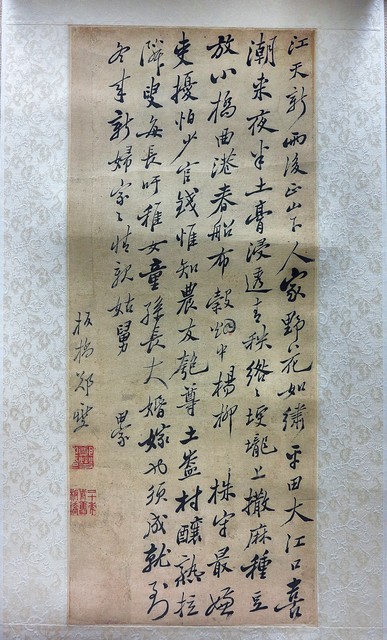 江天新雨後正山下人家野花如繡平田大江口喜
潮來夜半土膏浸透青秧綹〻埂壠上撒麻種豆
放小橋曲港春船布穀烟中楊柳 株守最嫌
吏擾怕少官錢惟知農友匏尊土盌村釀熟拉
鄰叟每長吁稚女童孫長大婚嫁也須成就到
冬來新婦家〻情親姑舅 田家
板橋鄭燮